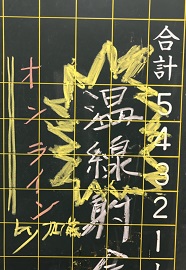 合計54321
温線射会
オンライン
by